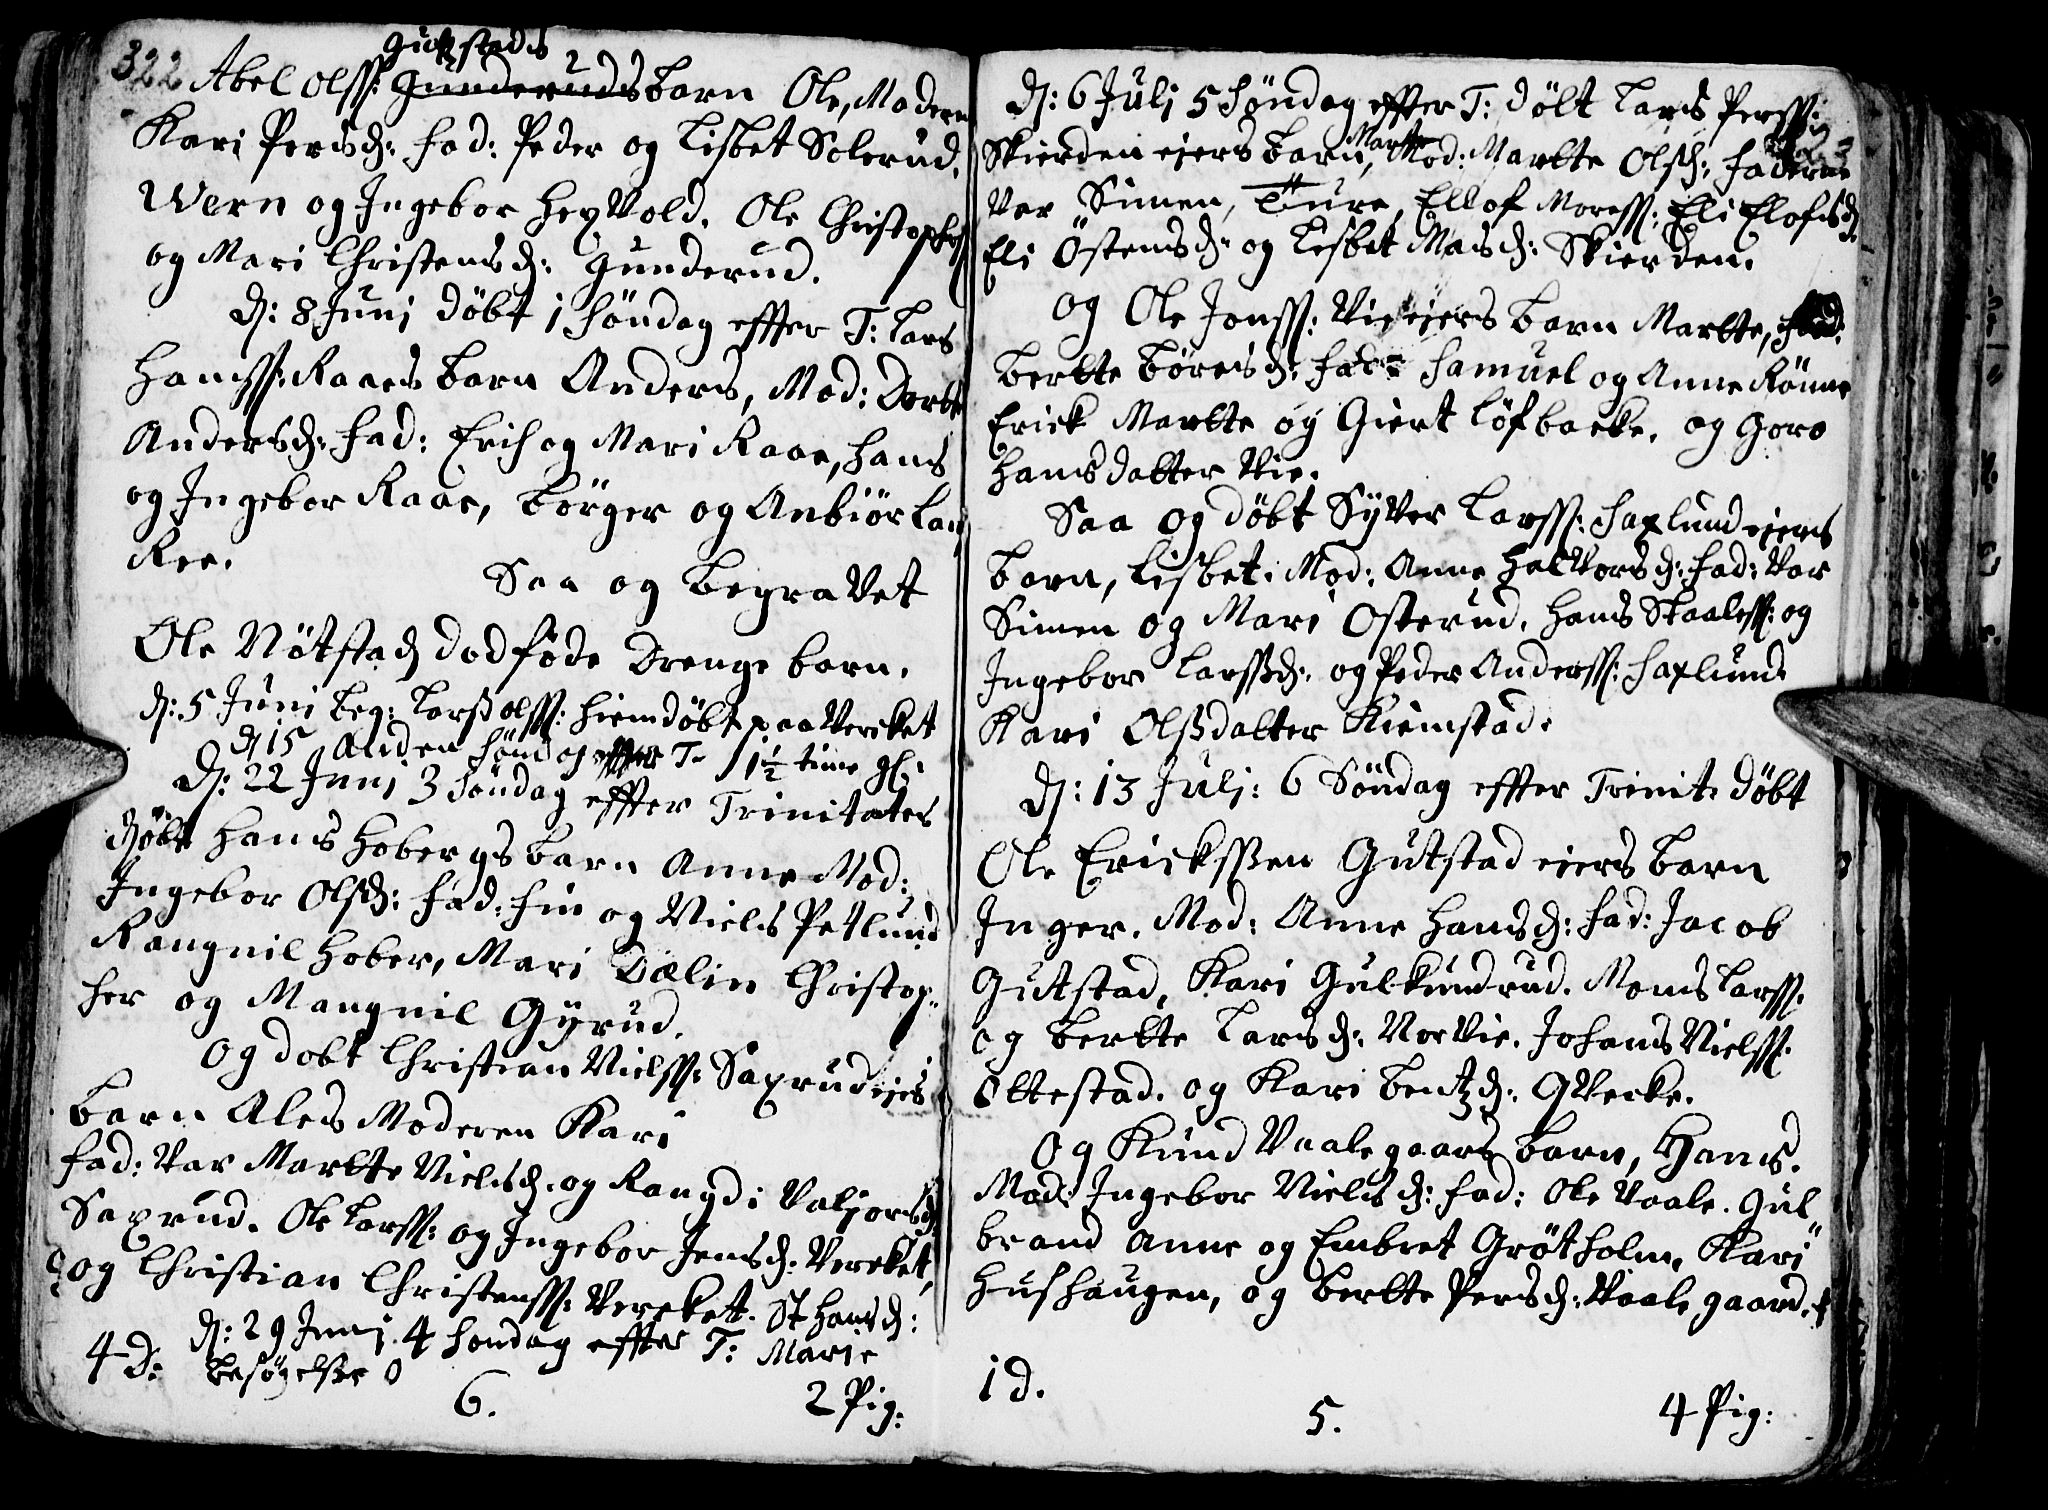 322 Abel Olss: Gunderuds Gutstads barn Ole, Moderen
Kari Persd: Fad: Peder og Lisbet Solerud.
Wern og Ingebor Hexvold. Ole Christophss
og Mari Christensd: Gunderud.
D: 8 Junj döbt 1 Söndag effter T: Lars
Hanss: Raaes barn Anders, Mod: Dorte
Andersd: Fad: Erich og Mari Raae, Hans
og Ingebor Raae, Börger og Anbiör Lan
Ree.
Saa og begravet
Ole Nötstad dodföde Drenge barn.
D: 5 Juni beg: Larss Olss: hiemdöbt paa Vercket
D 15 Anden Söndag effter T. 1½ time gl:
D: 22 Junj 3 Söndag effter Trinitates
döbt Hans Hobergs barn Anne Mod:
Ingebor Olsd: Fad: Fin og Niels Petlund
Rangnil Hober, Mari Dælin Christop-
her og Mangnil Gÿrud.
Og dobt Christian Nielss: Saxrudeies
barn Ales Moderen Kari
Fad: Var Martte Nielsd. og Rangdi Valjorsd
Saxrud. Ole Larss: og Ingebor Jensd. Vercket,
og Christian Christenss: Vercket. St Hans d:
D: 29 Junj. 4 Sondag effter T: Marie
4 D: besögelsse 0
6. 2 Pig:
D: 6 Julj 5 Söndag effter T: dölt Lars Perss:
Skierden eiers barn, Martte Mod: Martte Olsd: Faderne
var Simen, Ture, Ellof Moress: Eli Elofsd
Eli Östensd: og Lisbet Masd: Skierden.
og Ole Jonss: Vie eiers barn Martte,
Bertte Böresd: Fad: Samuel og Anne Rönne
Erick Martte og Giert Löfbacke. og Goro
Hansdatter Vie.
Saa og döbt Syver Larss: Saxlund eiers
barn, Lisbet. Mod: Anne Halvorsd: Fad: var
Simen og Mari Osterud. Hans Staaless: og
Ingebor Larssd: og Peder Anderss: Saxlund
Kari Olssdatter Kiemstad.
D: 13 Julj: 6 Söndag effter Trinit: döbt
Ole Erickssen Gutstad eiers barn
Inger. Mod: Anne Hansd: Fad: Jacob
Gutstad, Kari Gulkundrud. Mons Larss:
og Bertte Larsd: Norvie. Johans Nielss:
Ottestad. og Kari Bentzd: Qvecke.
Og Knud Vaalegaards barn, Hans.
Mod: Ingebor Nielsd: Fad: Ole Vaale. Gul-
brand Anne og Embret Grötholm, Kari
Hushaugen, og Bertte Persd: Vaalegaard.
1 d.
5. 4 Pig: